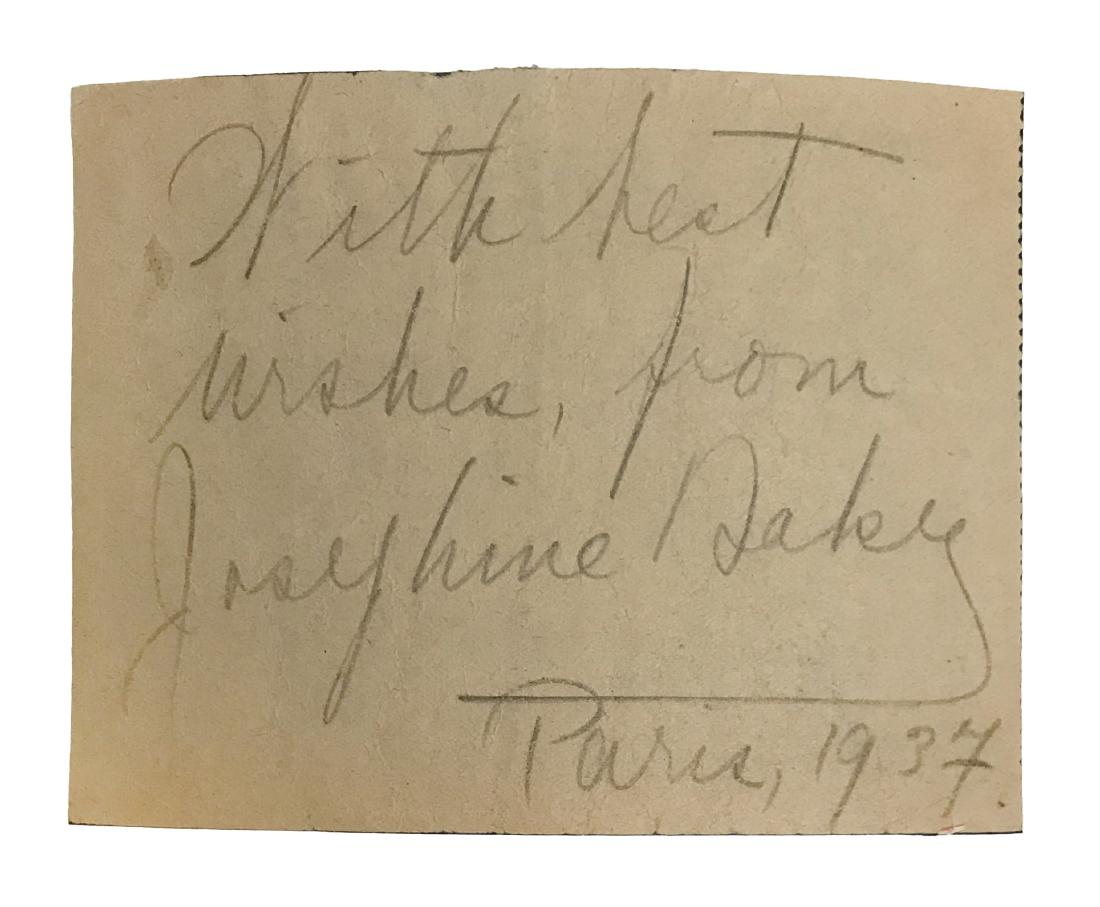 With best
wishes, from
Josephine Baker
Paris, 1937.